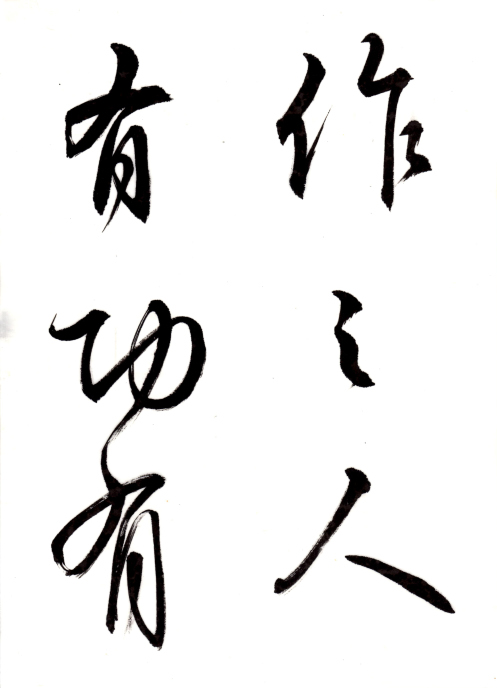 作之人
有功有